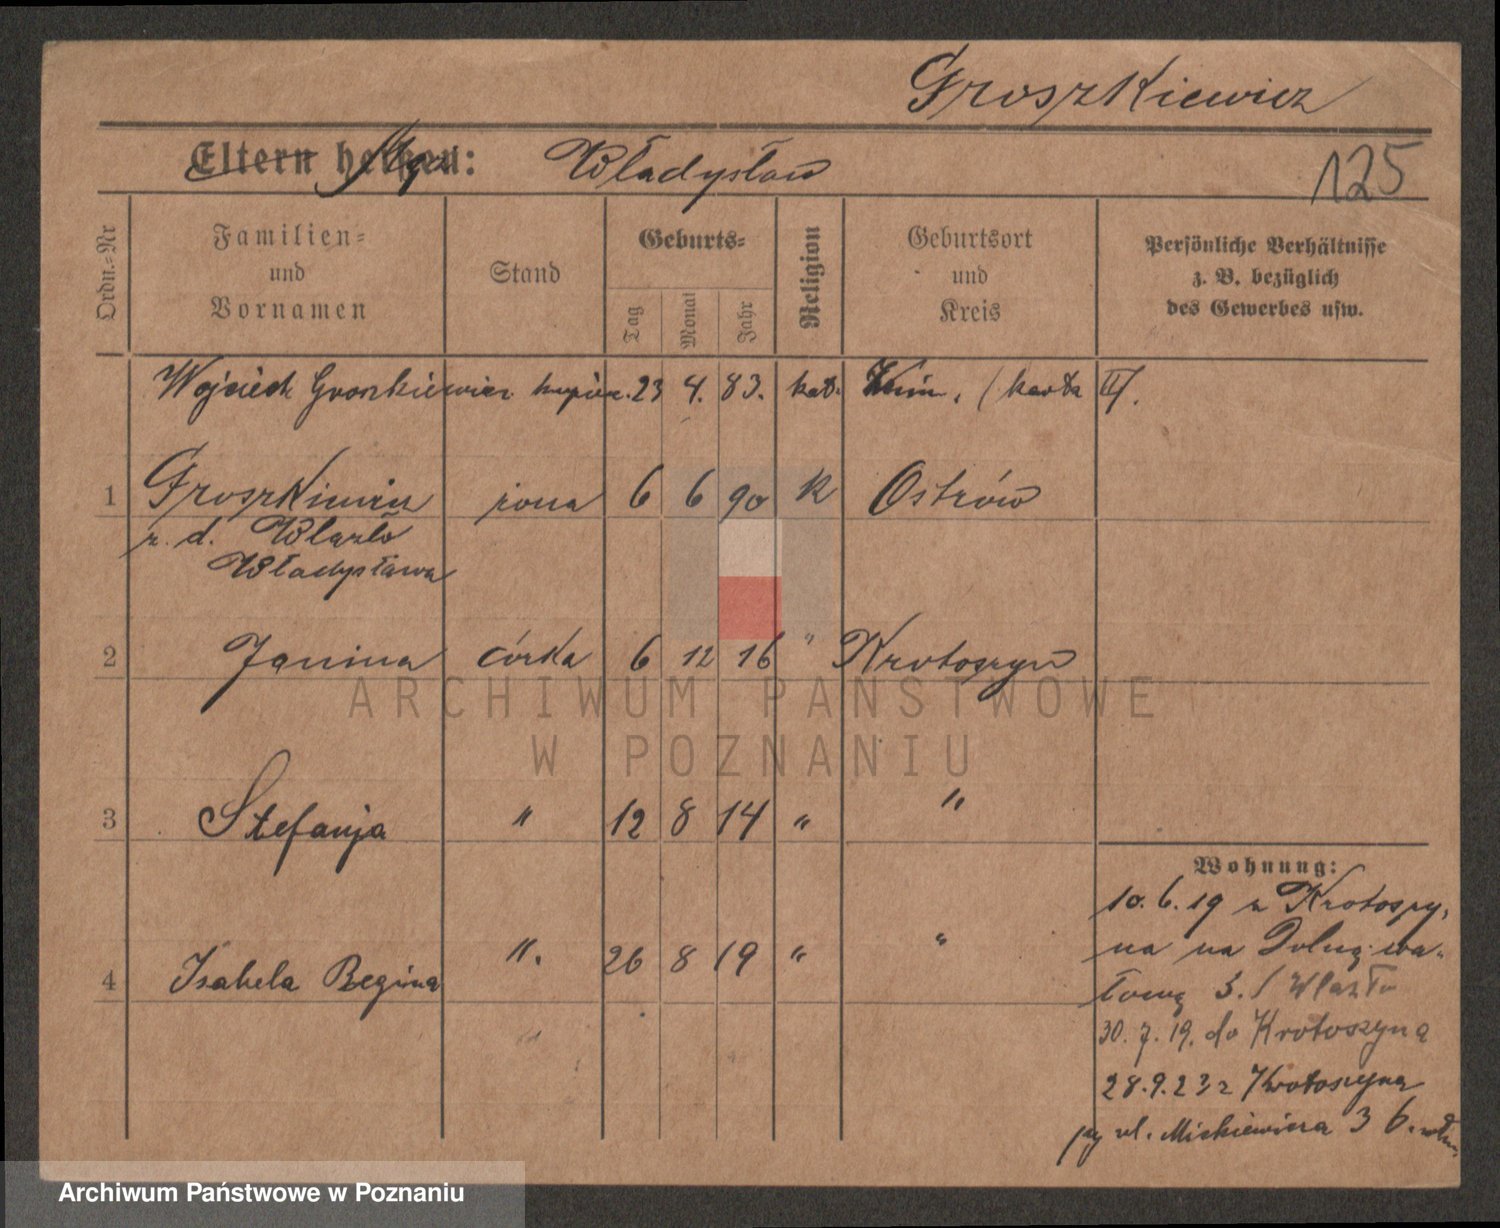 Groszkiewicz
Eltern heißen: Władysław
125
Ordn.-Nr
Familien-
und
Vornamen
Stand
Geburts-
Tag
Monat
Jahr
Religion
Geburtsort
und
Kreis
Persönliche Verhältnisse
z. B. bezüglich
des Gewerbes usw.
Wojciech Groszkiewicz kupiec. 23 4. 83. kat. (karta II).
1 Groszkiewicz żona 6 6 90 k Ostrów
z. d. Wlazło
Władysława
2 Janina córka 6 12 16 " Krotoszyn
3 Stefanja " 12 8 14 " "
4 Isabela Regina ". 26 8 19 " "
Wohnung:
10. 6. 19 z Krotoszy,
na na Dolną wa-
łową 3. / Wlazło
30. 7. 19. do Krotoszyna
28. 9. 23 z Krotoszyna
ul. Mickiewicza 36.
ARCHIWUM PAŃSTWOWE
W POZNANIU
Archiwum Państwowe w Poznaniu